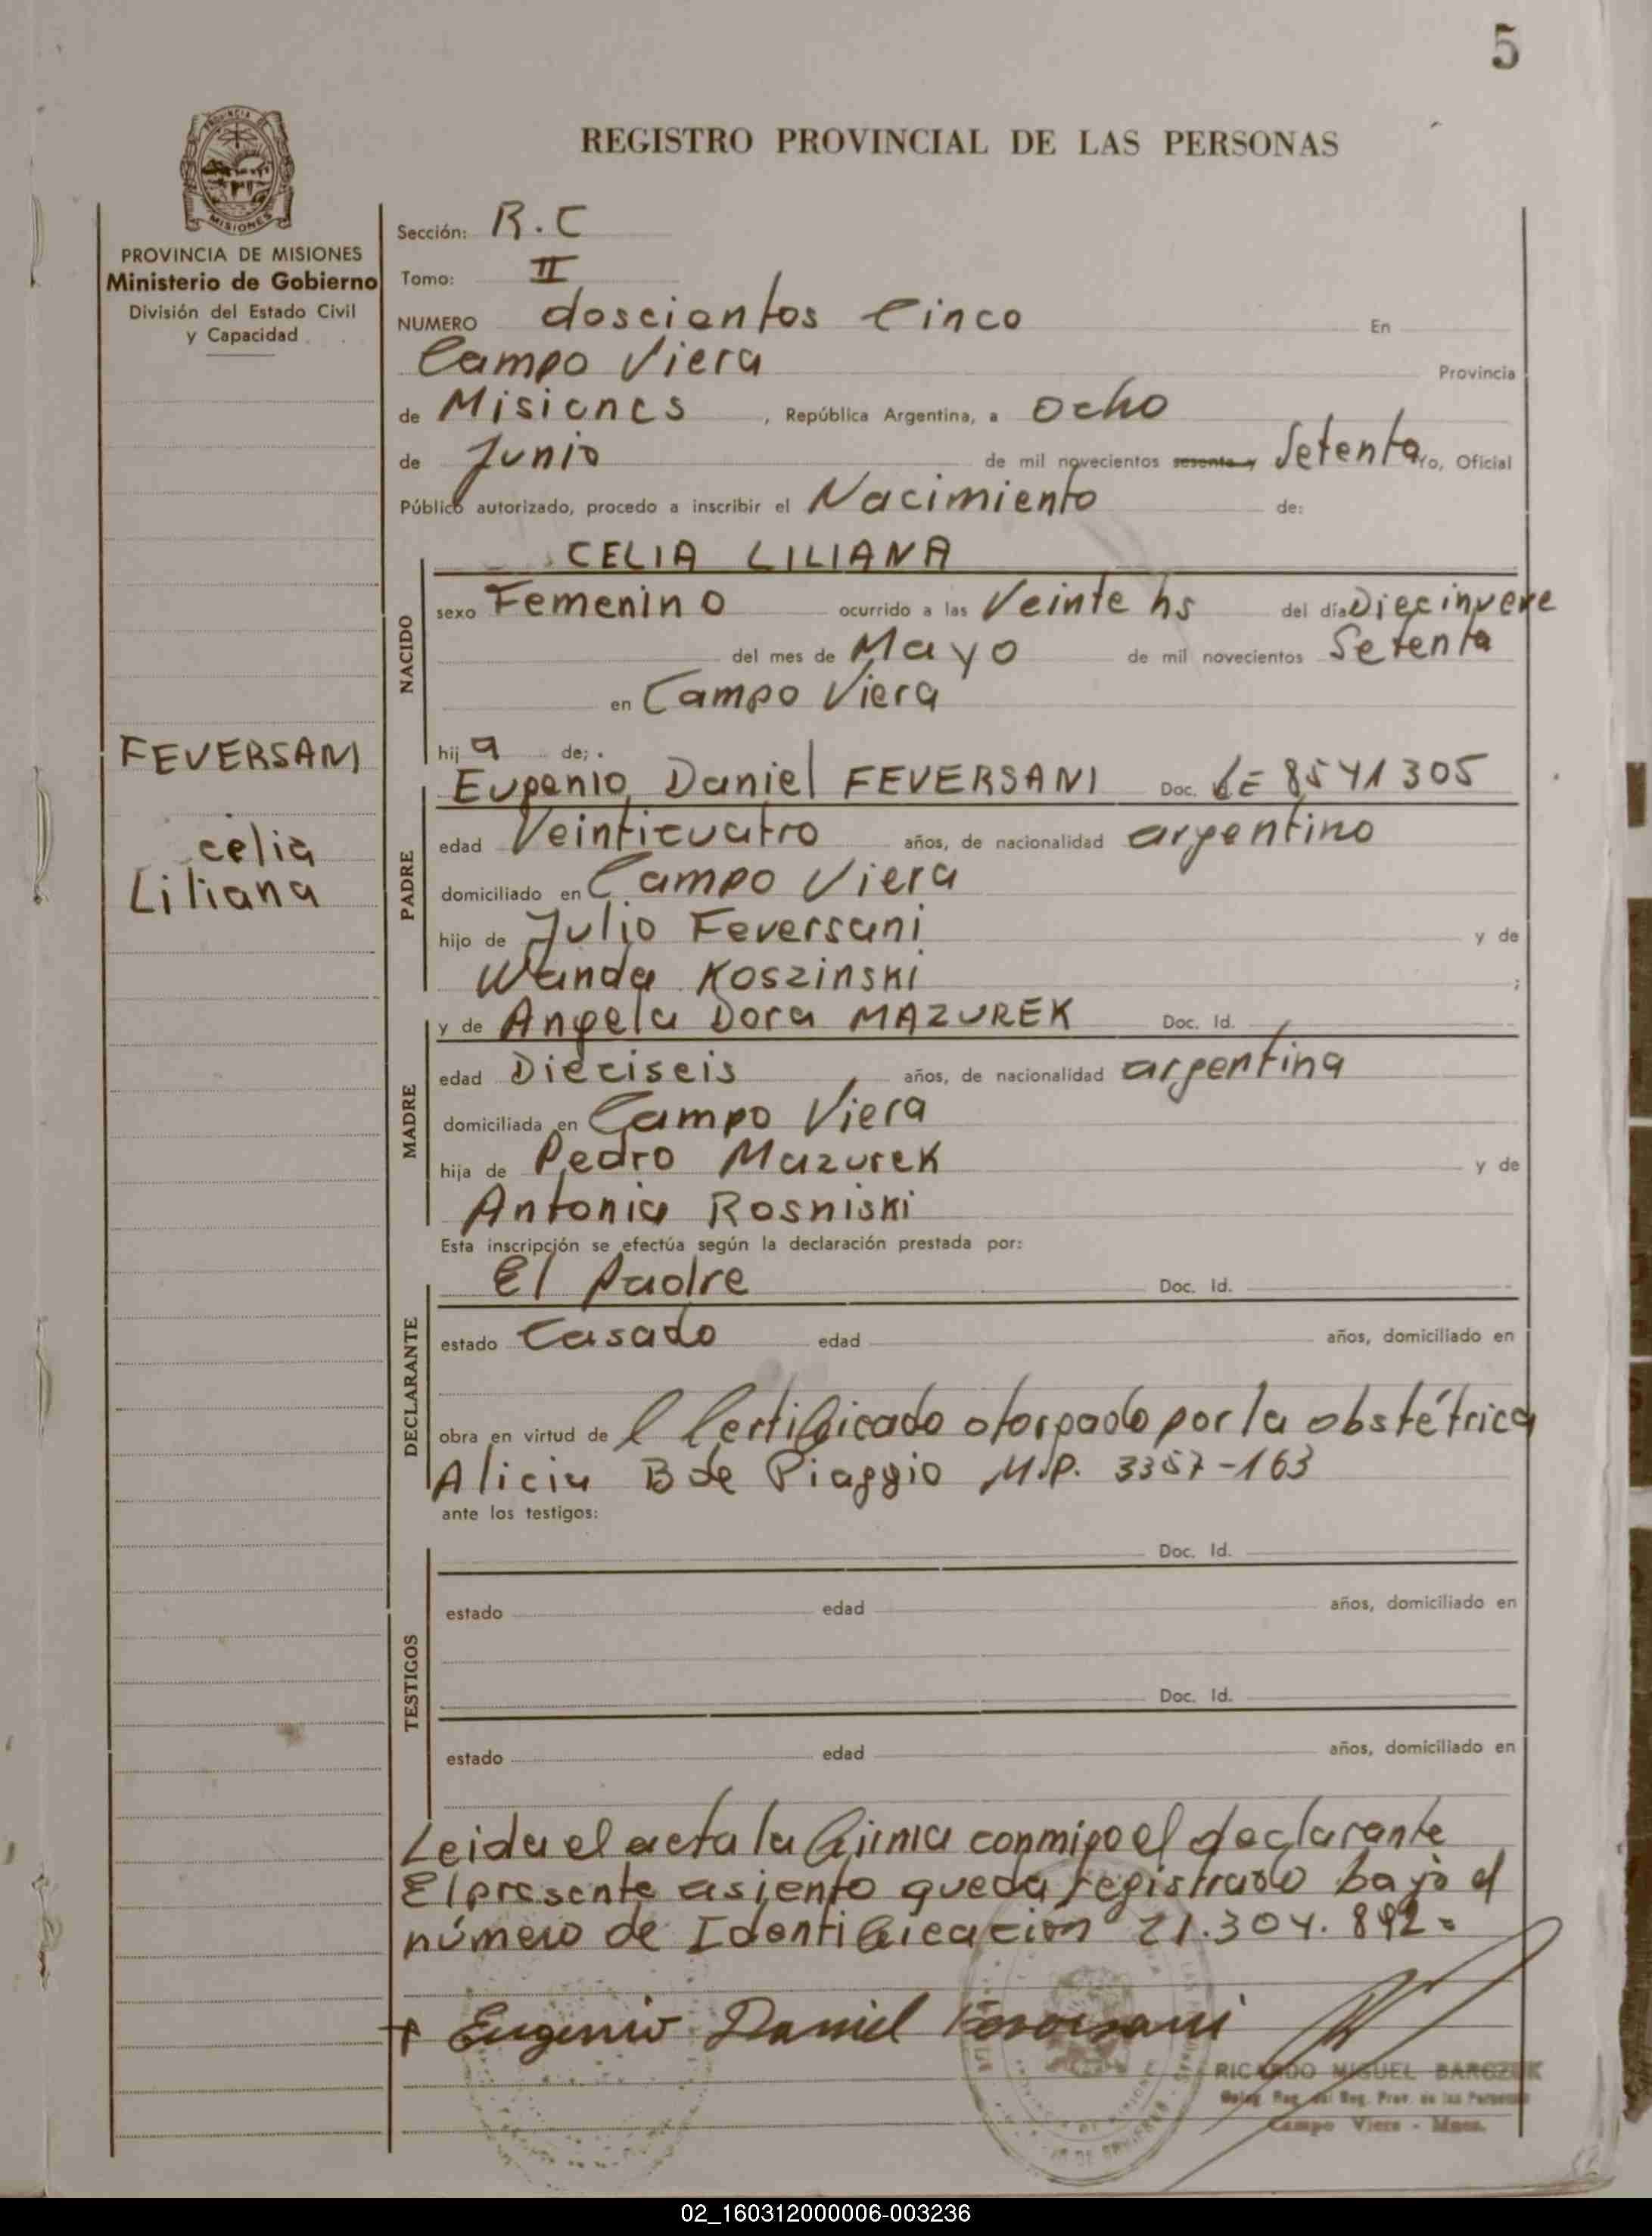 5
REGISTRO PROVINCIAL DE LAS PERSONAS
PROVINCIA DE MISIONES
Ministerio de Gobierno
División del Estado Civil
y Capacidad
Sección: R.C
Tomo: II
NUMERO doscientos Cinco En
Campo Viera Provincia
de Misiones, República Argentina, a Ocho
de Junio de mil novecientos sesenta y Setenta ro, Oficial
Público autorizado, procedo a inscribir el Nacimiento de:
NACIDO
CELIA LILIANA
sexo Femenino ocurrido a las Veinte hs del día Diecinueve
del mes de Mayo de mil novecientos Setenta
en Campo Viera
FEVERSANI
celia
Liliana
hij a de;
PADRE
Eugenio Daniel FEVERSANI Doc. LE 8541305
edad Veinticuatro años, de nacionalidad argentino
domiciliado en Campo Viera
hijo de Julio Feversani y de
Wanda Koszinski ;
MADRE
y de Angela Dora MAZUREK Doc. Id.
edad Dieciseis años, de nacionalidad argentina
domiciliada en Campo Viera
hija de Pedro Mazurek y de
Antonia Rosniski
Esta inscripción se efectúa según la declaración prestada por:
DECLARANTE
El Padre Doc. Id.
estado Casado edad años, domiciliado en
obra en virtud de l Certificado otorgado por la obstétrica
Alicia B de Piaggio M.P. 3357-163
ante los testigos:
TESTIGOS
Doc. Id.
estado edad años, domiciliado en
Doc. Id.
estado edad años, domiciliado en
Leida el acta la firma conmigo el declarante
El presente asiento queda registrado bajo el
número de Identificación 21.304.892=
Eugenio Daniel Feversani
RICARDO MIGUEL BARCZUK
Deleg. Reg. del Reg. Prov. de las Personas
Campo Viera - Mnes.
02_160312000006-003236